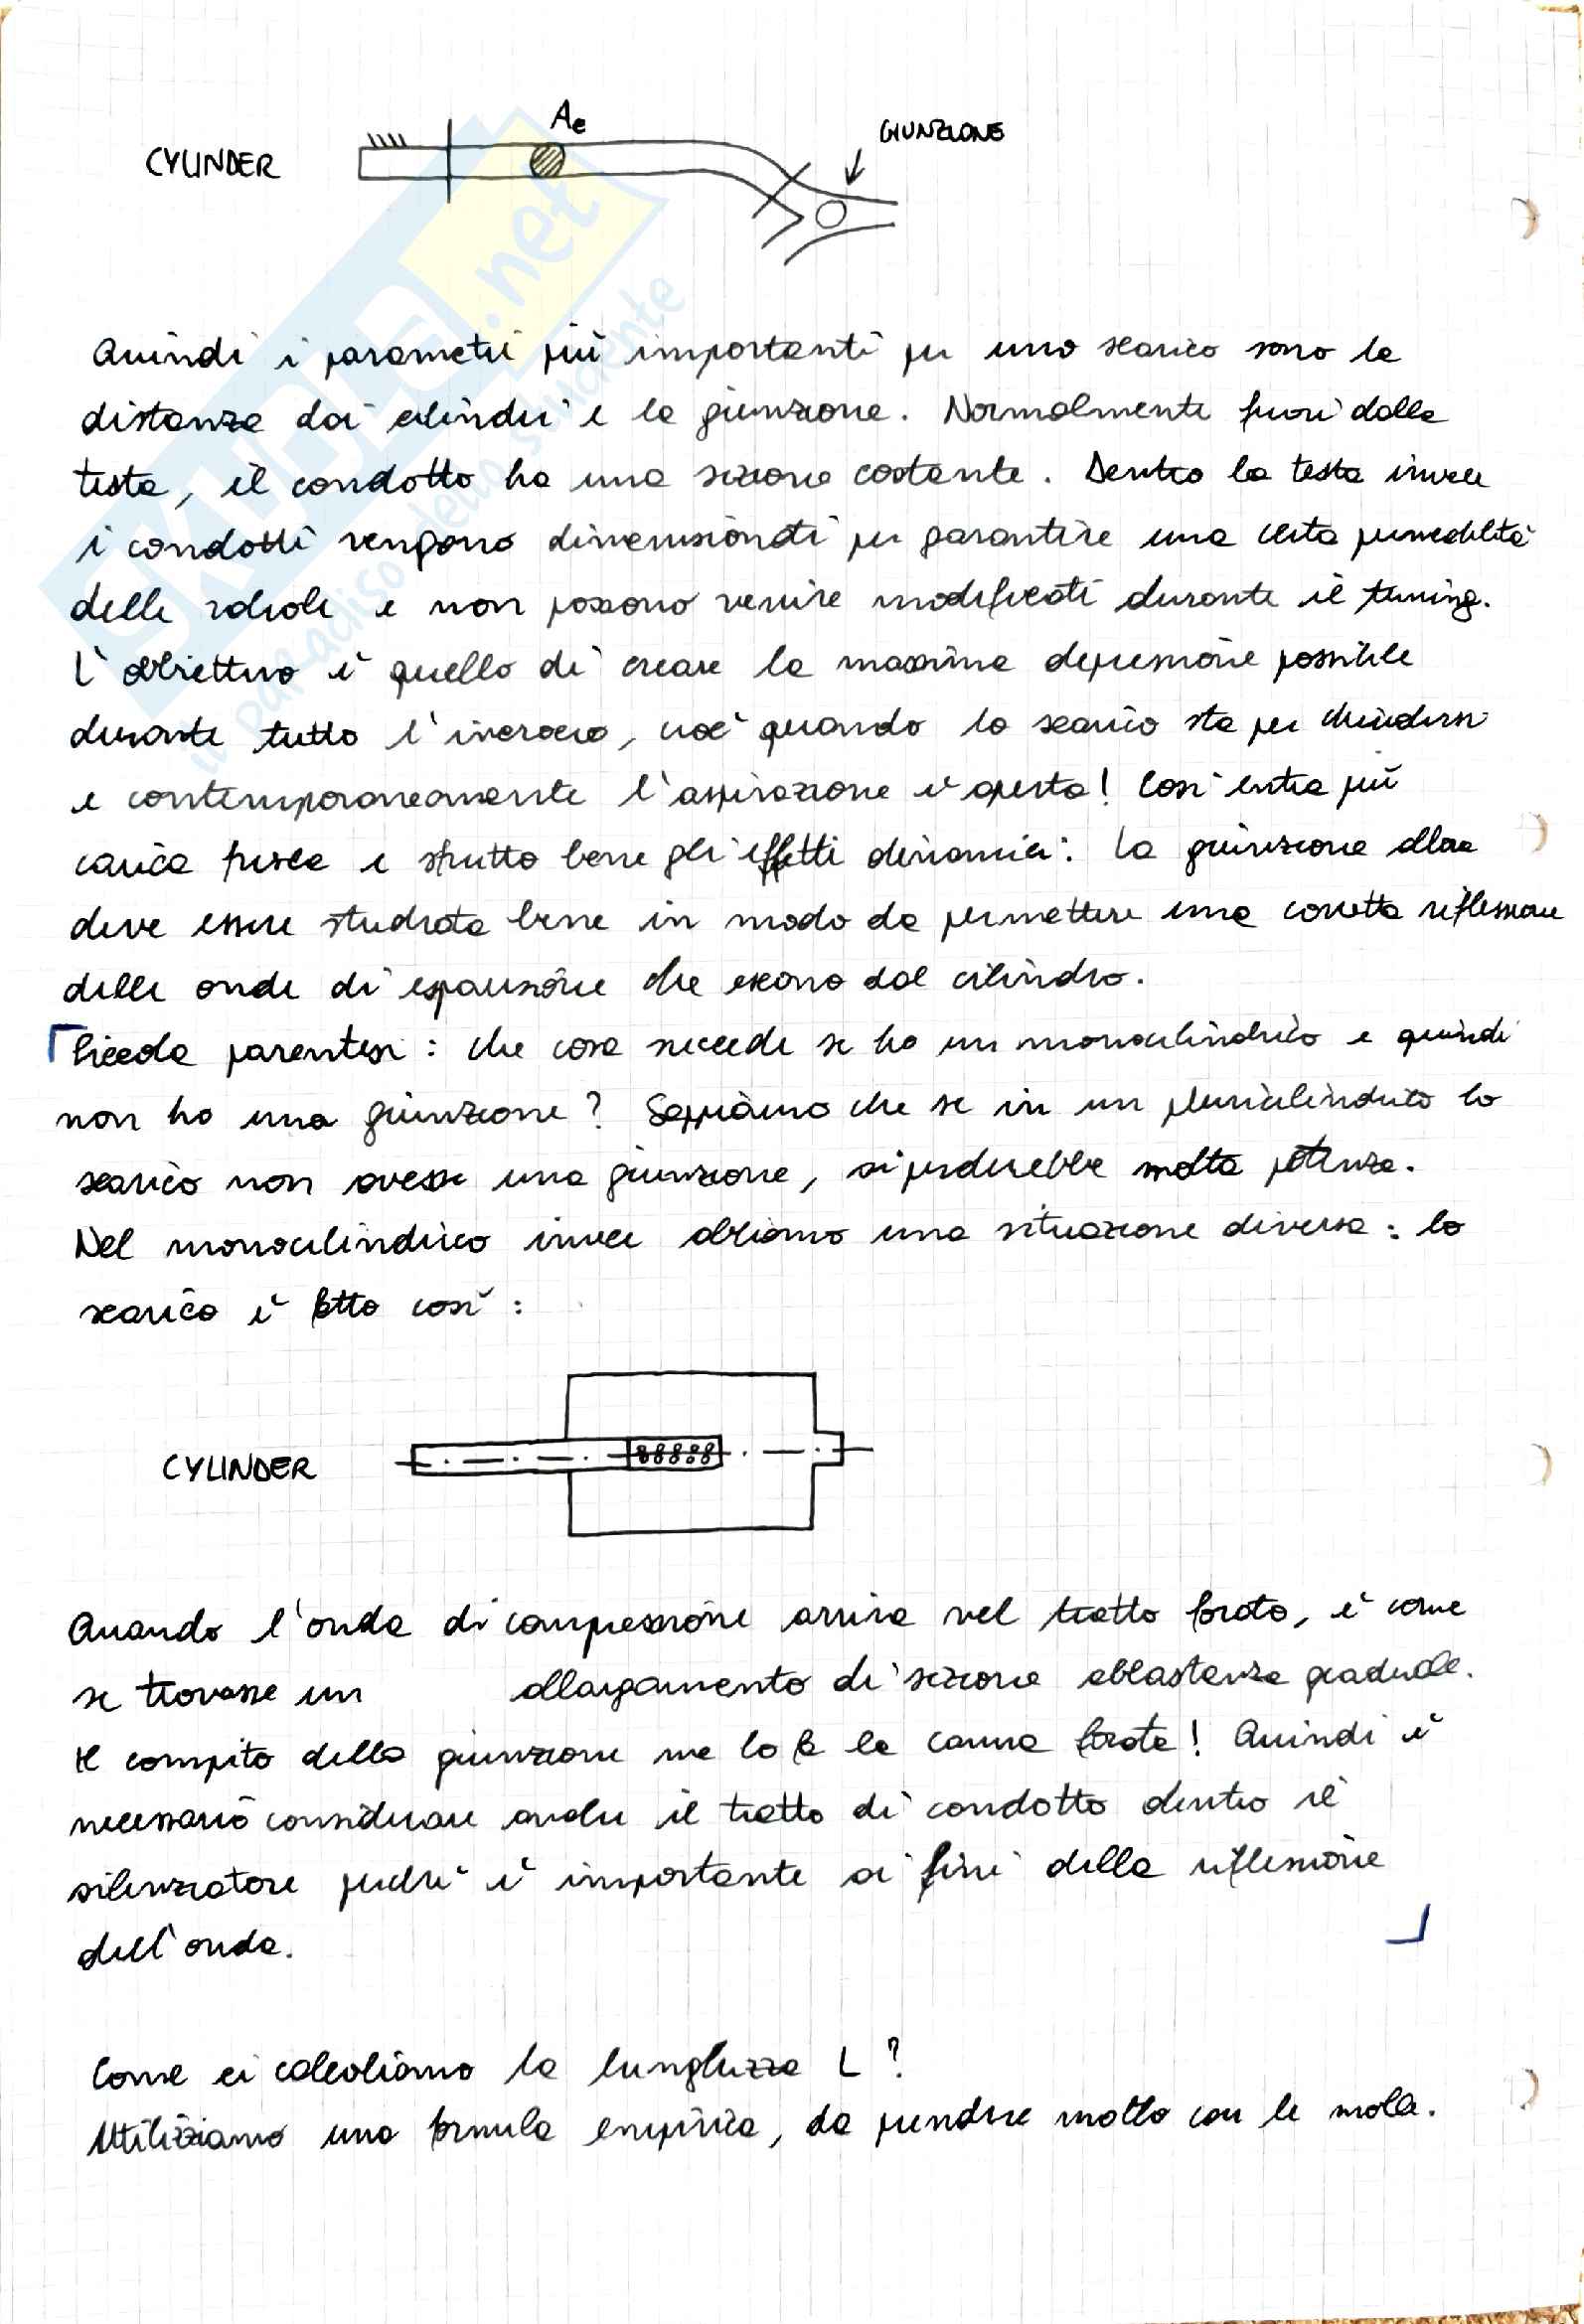 Ae
GIUNZIONE
CYLINDER
Quindi i parametri più importanti per uno scarico sono la
distanza dai cilindri e la giunzione. Normalmente fuori dalla
testa, il condotto ha una sezione costante. Dentro la testa invece
i condotti vengono dimensionati per garantire una certa permeabilità
delle valvole e non possono venire modificati durante il tuning.
L'obbiettivo è quello di creare la massima depressione possibile
durante tutto l'incrocio, cioè quando lo scarico sta per chiudersi
e contemporaneamente l'aspirazione è aperta! Così entra più
carica fresca e sfrutto bene gli effetti dinamici. La giunzione allora
deve essere studiata bene in modo da permettere una corretta riflessione
delle onde di espansione che escono dal cilindro.
Piccola parentesi: che cosa succede se ho un monocilindrico e quindi
non ho una giunzione? Sappiamo che se in un pluricilindrico lo
scarico non avesse una giunzione, si perderebbe molta potenza.
Nel monocilindrico invece abbiamo una situazione diversa: lo
scarico è fatto così:
CYLINDER
Quando l'onda di compressione arriva nel tratto forato, è come
se trovasse un allargamento di sezione abbastanza graduale.
Il compito della giunzione me lo fa la canna forata! Quindi è
necessario considerare anche il tratto di condotto dentro il
silenziatore perchè è importante ai fini della riflessione
dell'onda.
Come ci calcoliamo la lunghezza L?
Utilizziamo una formula empirica, da prendere molto con le molle.
SKUOLA.net
il paradiso dello studente